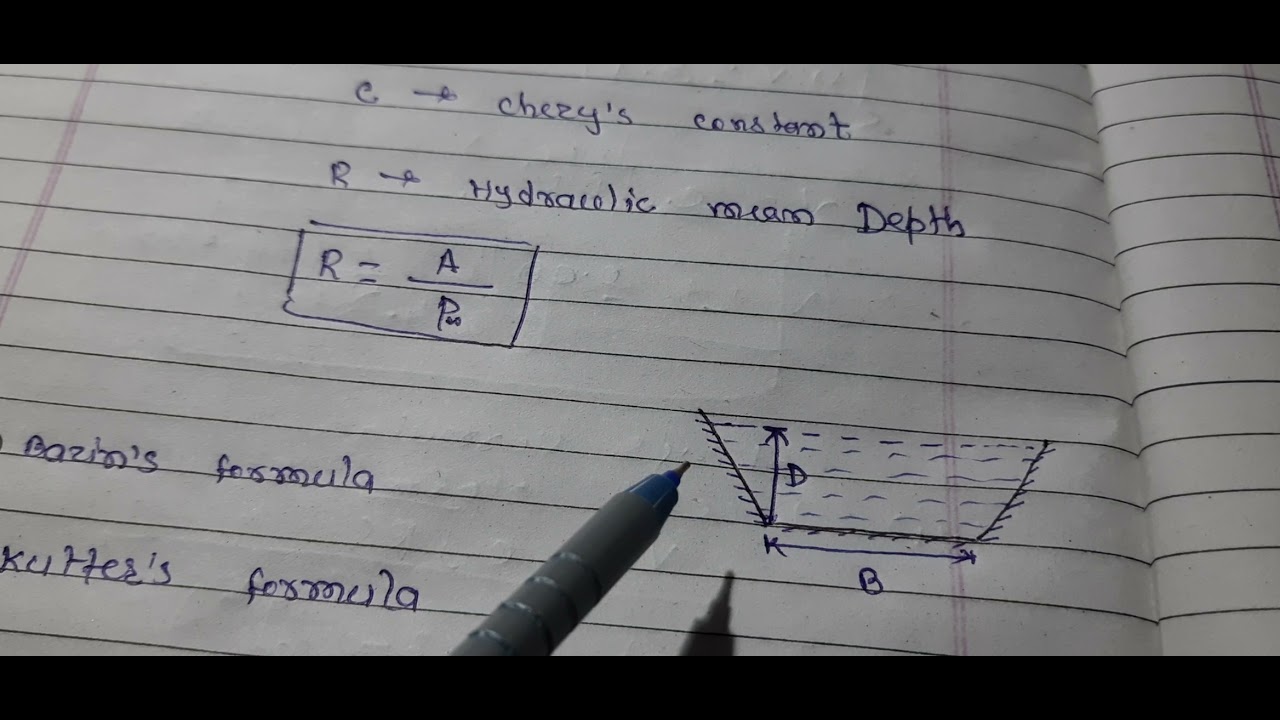 C → Chezy's constant
R → Hydraulic mean Depth
R = A / Pw
Bazin's formula
D
Kutter's formula
B